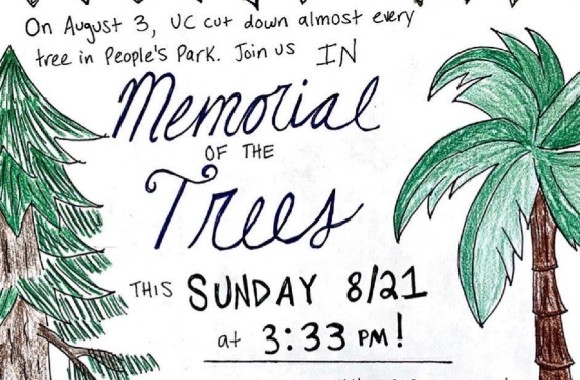 On August 3, UC cut down almost every
tree in People's Park. Join us IN
Memorial
OF THE
Trees
THIS SUNDAY 8/21
at 3:33 PM!